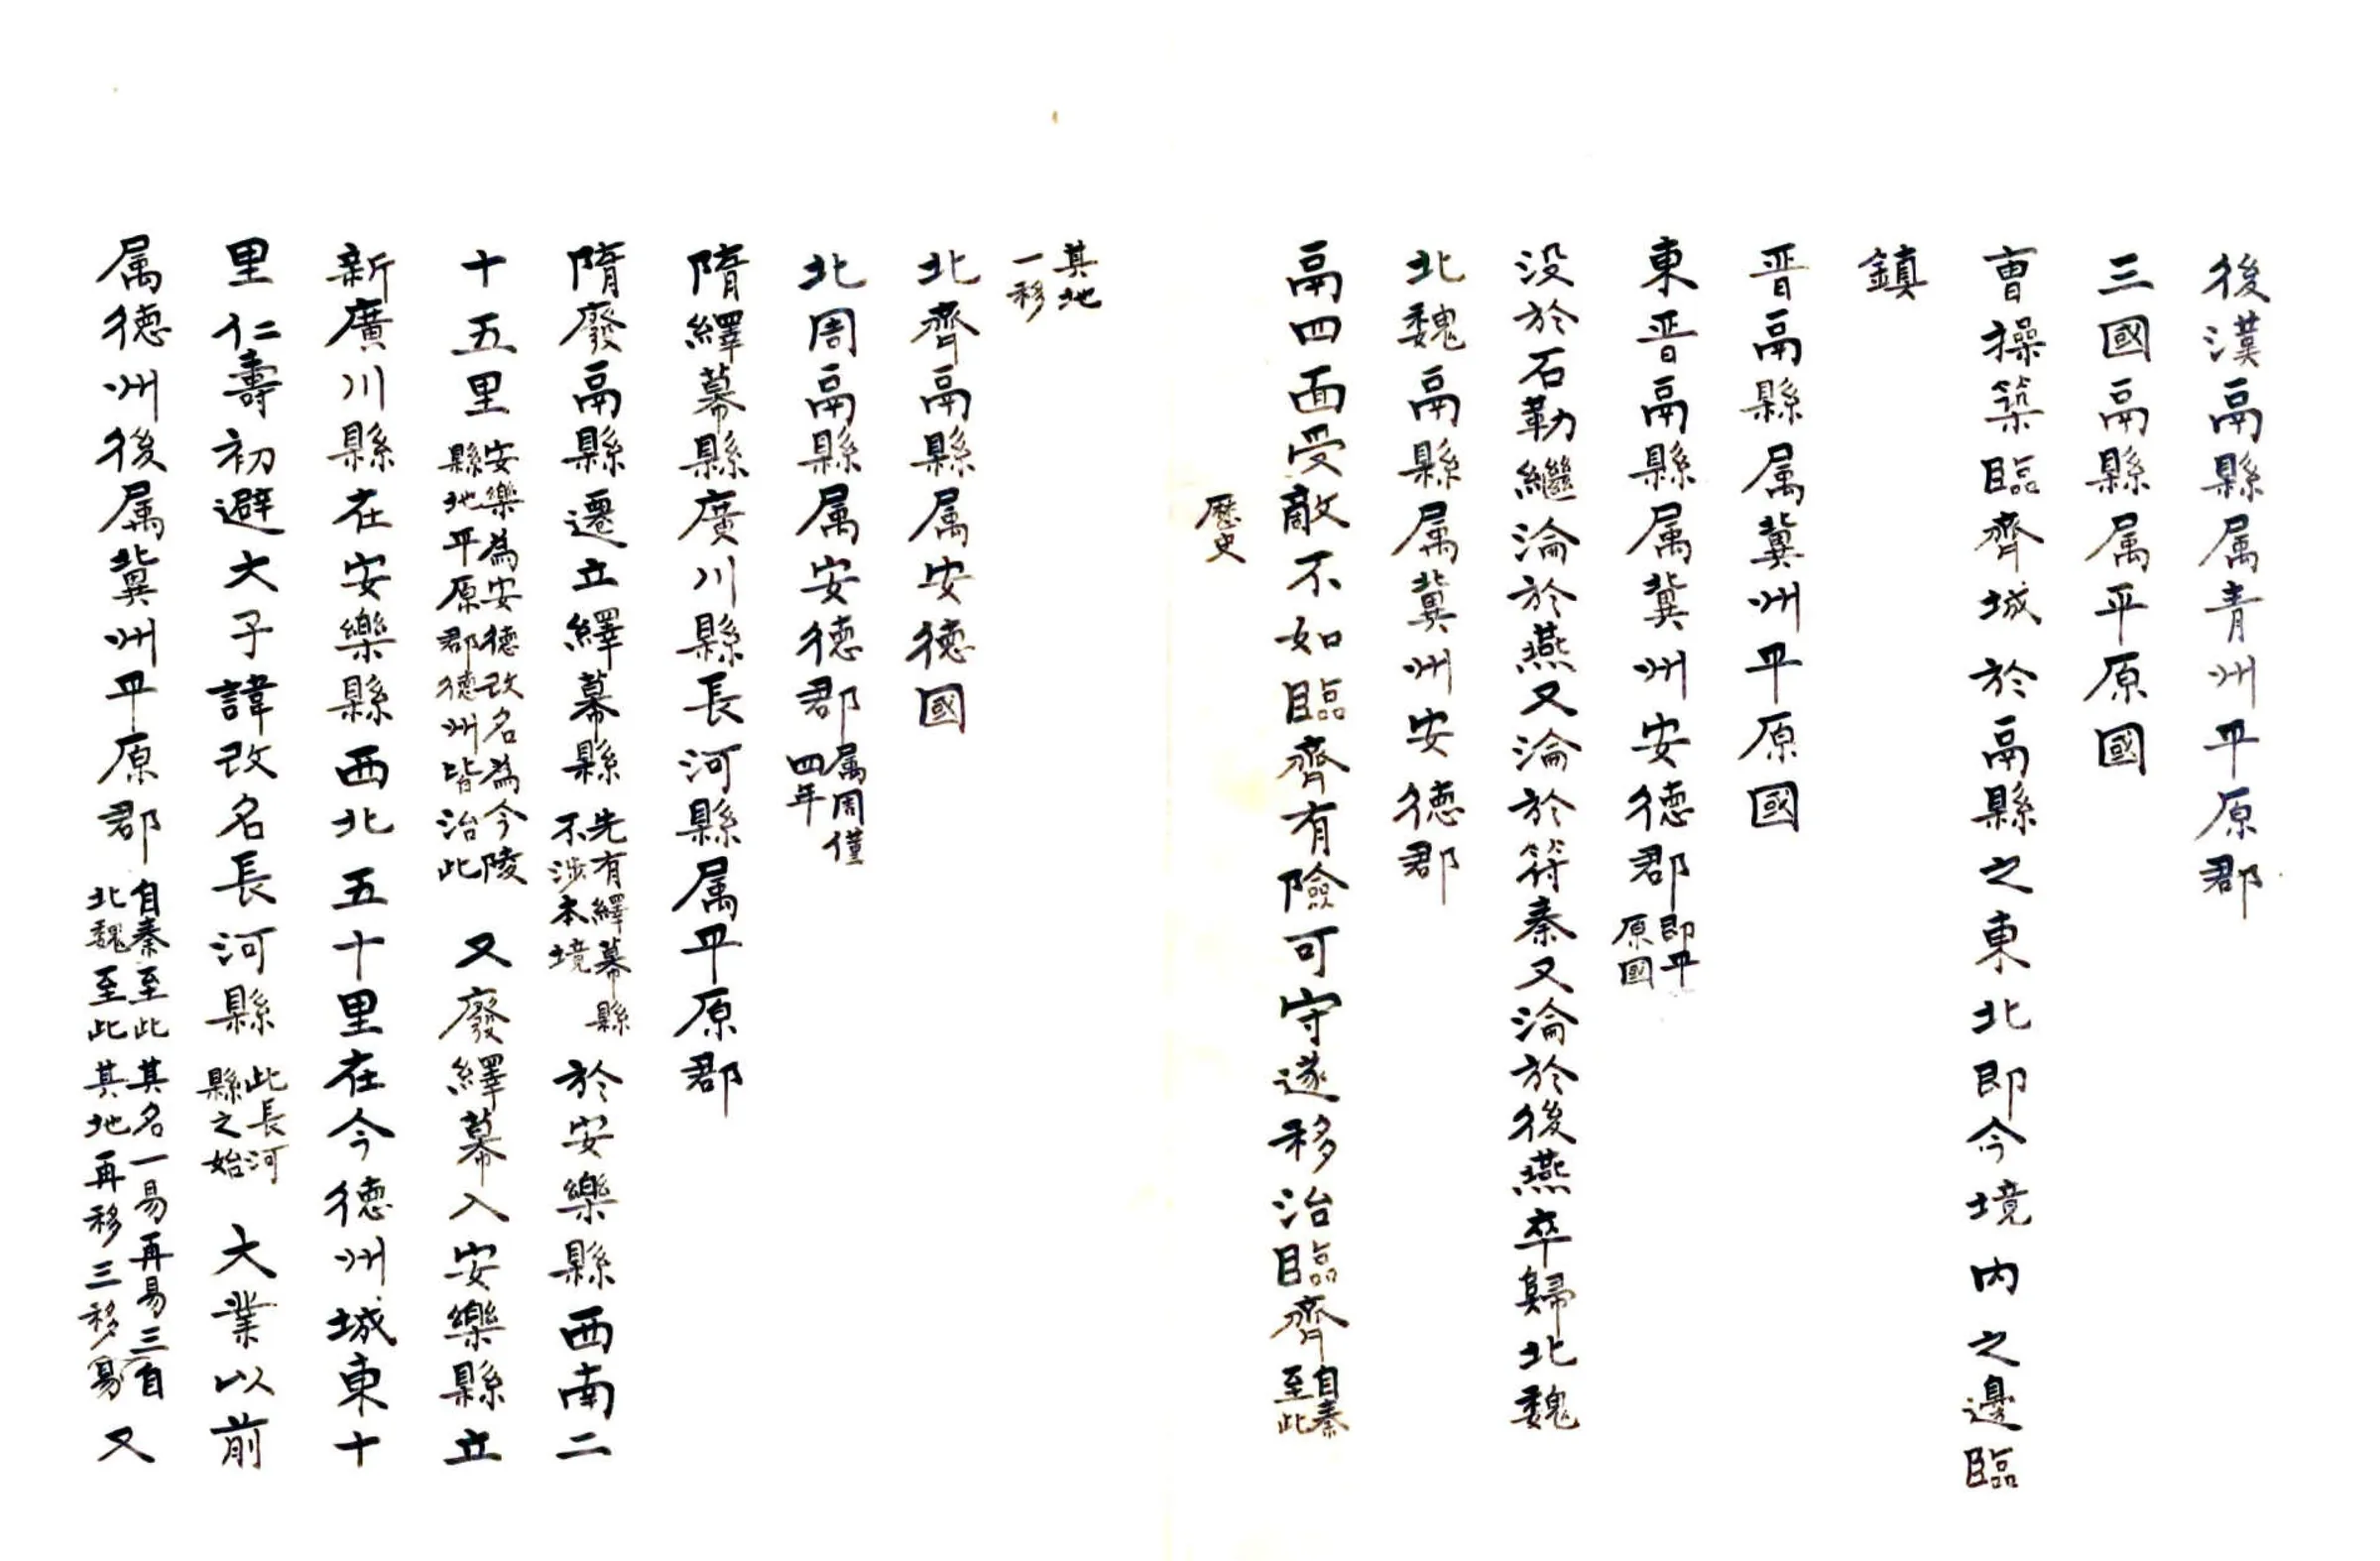 後漢鬲縣属青州平原郡
三國鬲縣属平原國
曹操築臨齊城於鬲縣之東北即今境内之邊臨
鎮
晋鬲縣属冀州平原國
東晋鬲縣属冀州安德郡即平原國
没於石勒繼淪於燕又淪於符秦又淪於後燕卒歸北魏
北魏鬲縣属冀州安德郡
鬲四面受敵不如臨齊有險可守遂移治臨齊自秦至此
歷史
其地一移
北齊鬲縣属安德國
北周鬲縣属安德郡属周僅四年
隋繹幕縣廣川縣長河縣属平原郡
隋廢鬲縣遷立繹幕縣先有繹幕縣不涉本境於安樂縣西南二
十五里安樂為安德改名為今陵縣地平原郡德州皆治此又廢繹幕入安樂縣立
新廣川縣在安樂縣西北五十里在今德州城東十
里仁壽初避大子諱改名長河縣此長河縣之始大業以前
属德州後属冀州平原郡自秦至此其名一易再易三自北魏至此其地再移三移易又